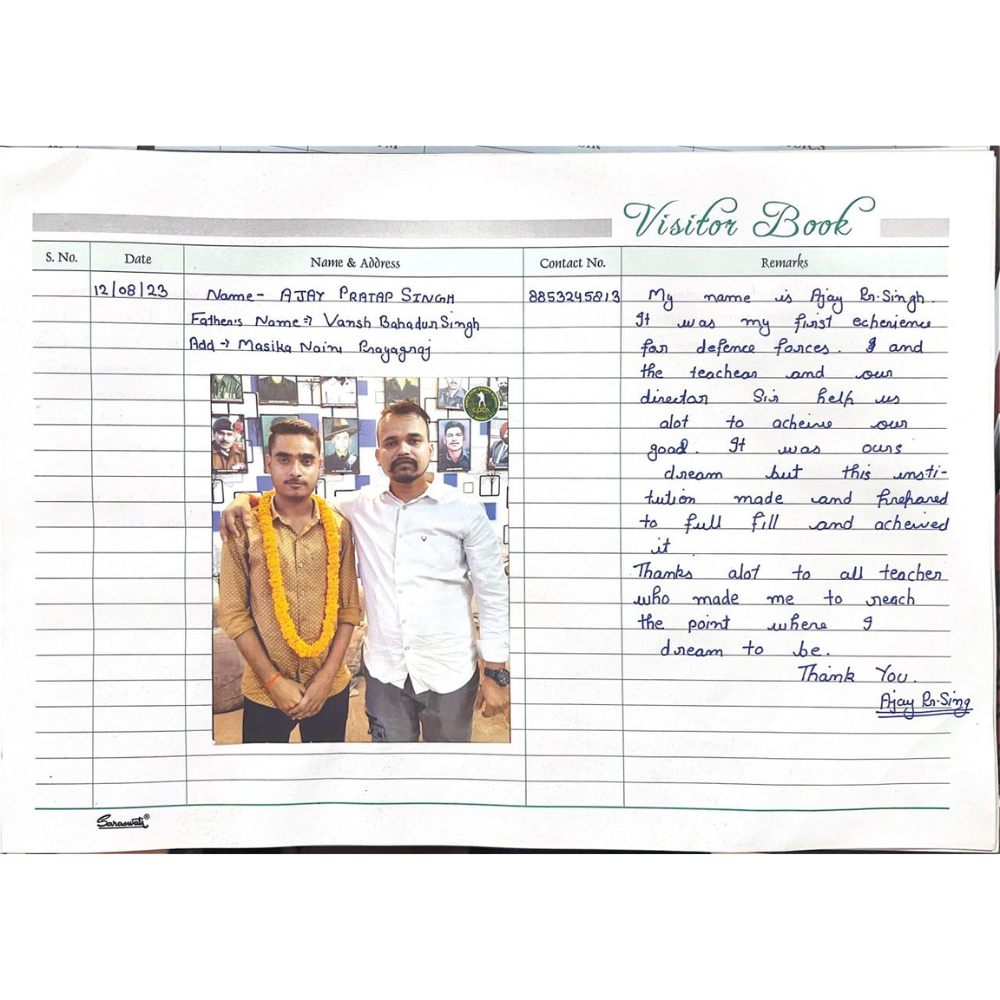 Visitor Book
S. No. Date Name & Address Contact No. Remarks
12/08/23 Name- AJAY PRATAP SINGH 8853245813
Father's Name⇒ Vansh Bahadur Singh
Add → Masika Naini Prayagraj
My name is Ajay Pr. Singh.
It was my first echerience
for defence forces. I and
the teachear and our
director Sir help us
alot to acheive our
good. It was ours
dream but this insti-
tution made and prepared
to full fill and acheived
it.
Thanks alot to all teacher
who made me to reach
the point where I
dream to be.
Thank You.
Ajay Pr. Sing
CDCA
Saraswati®